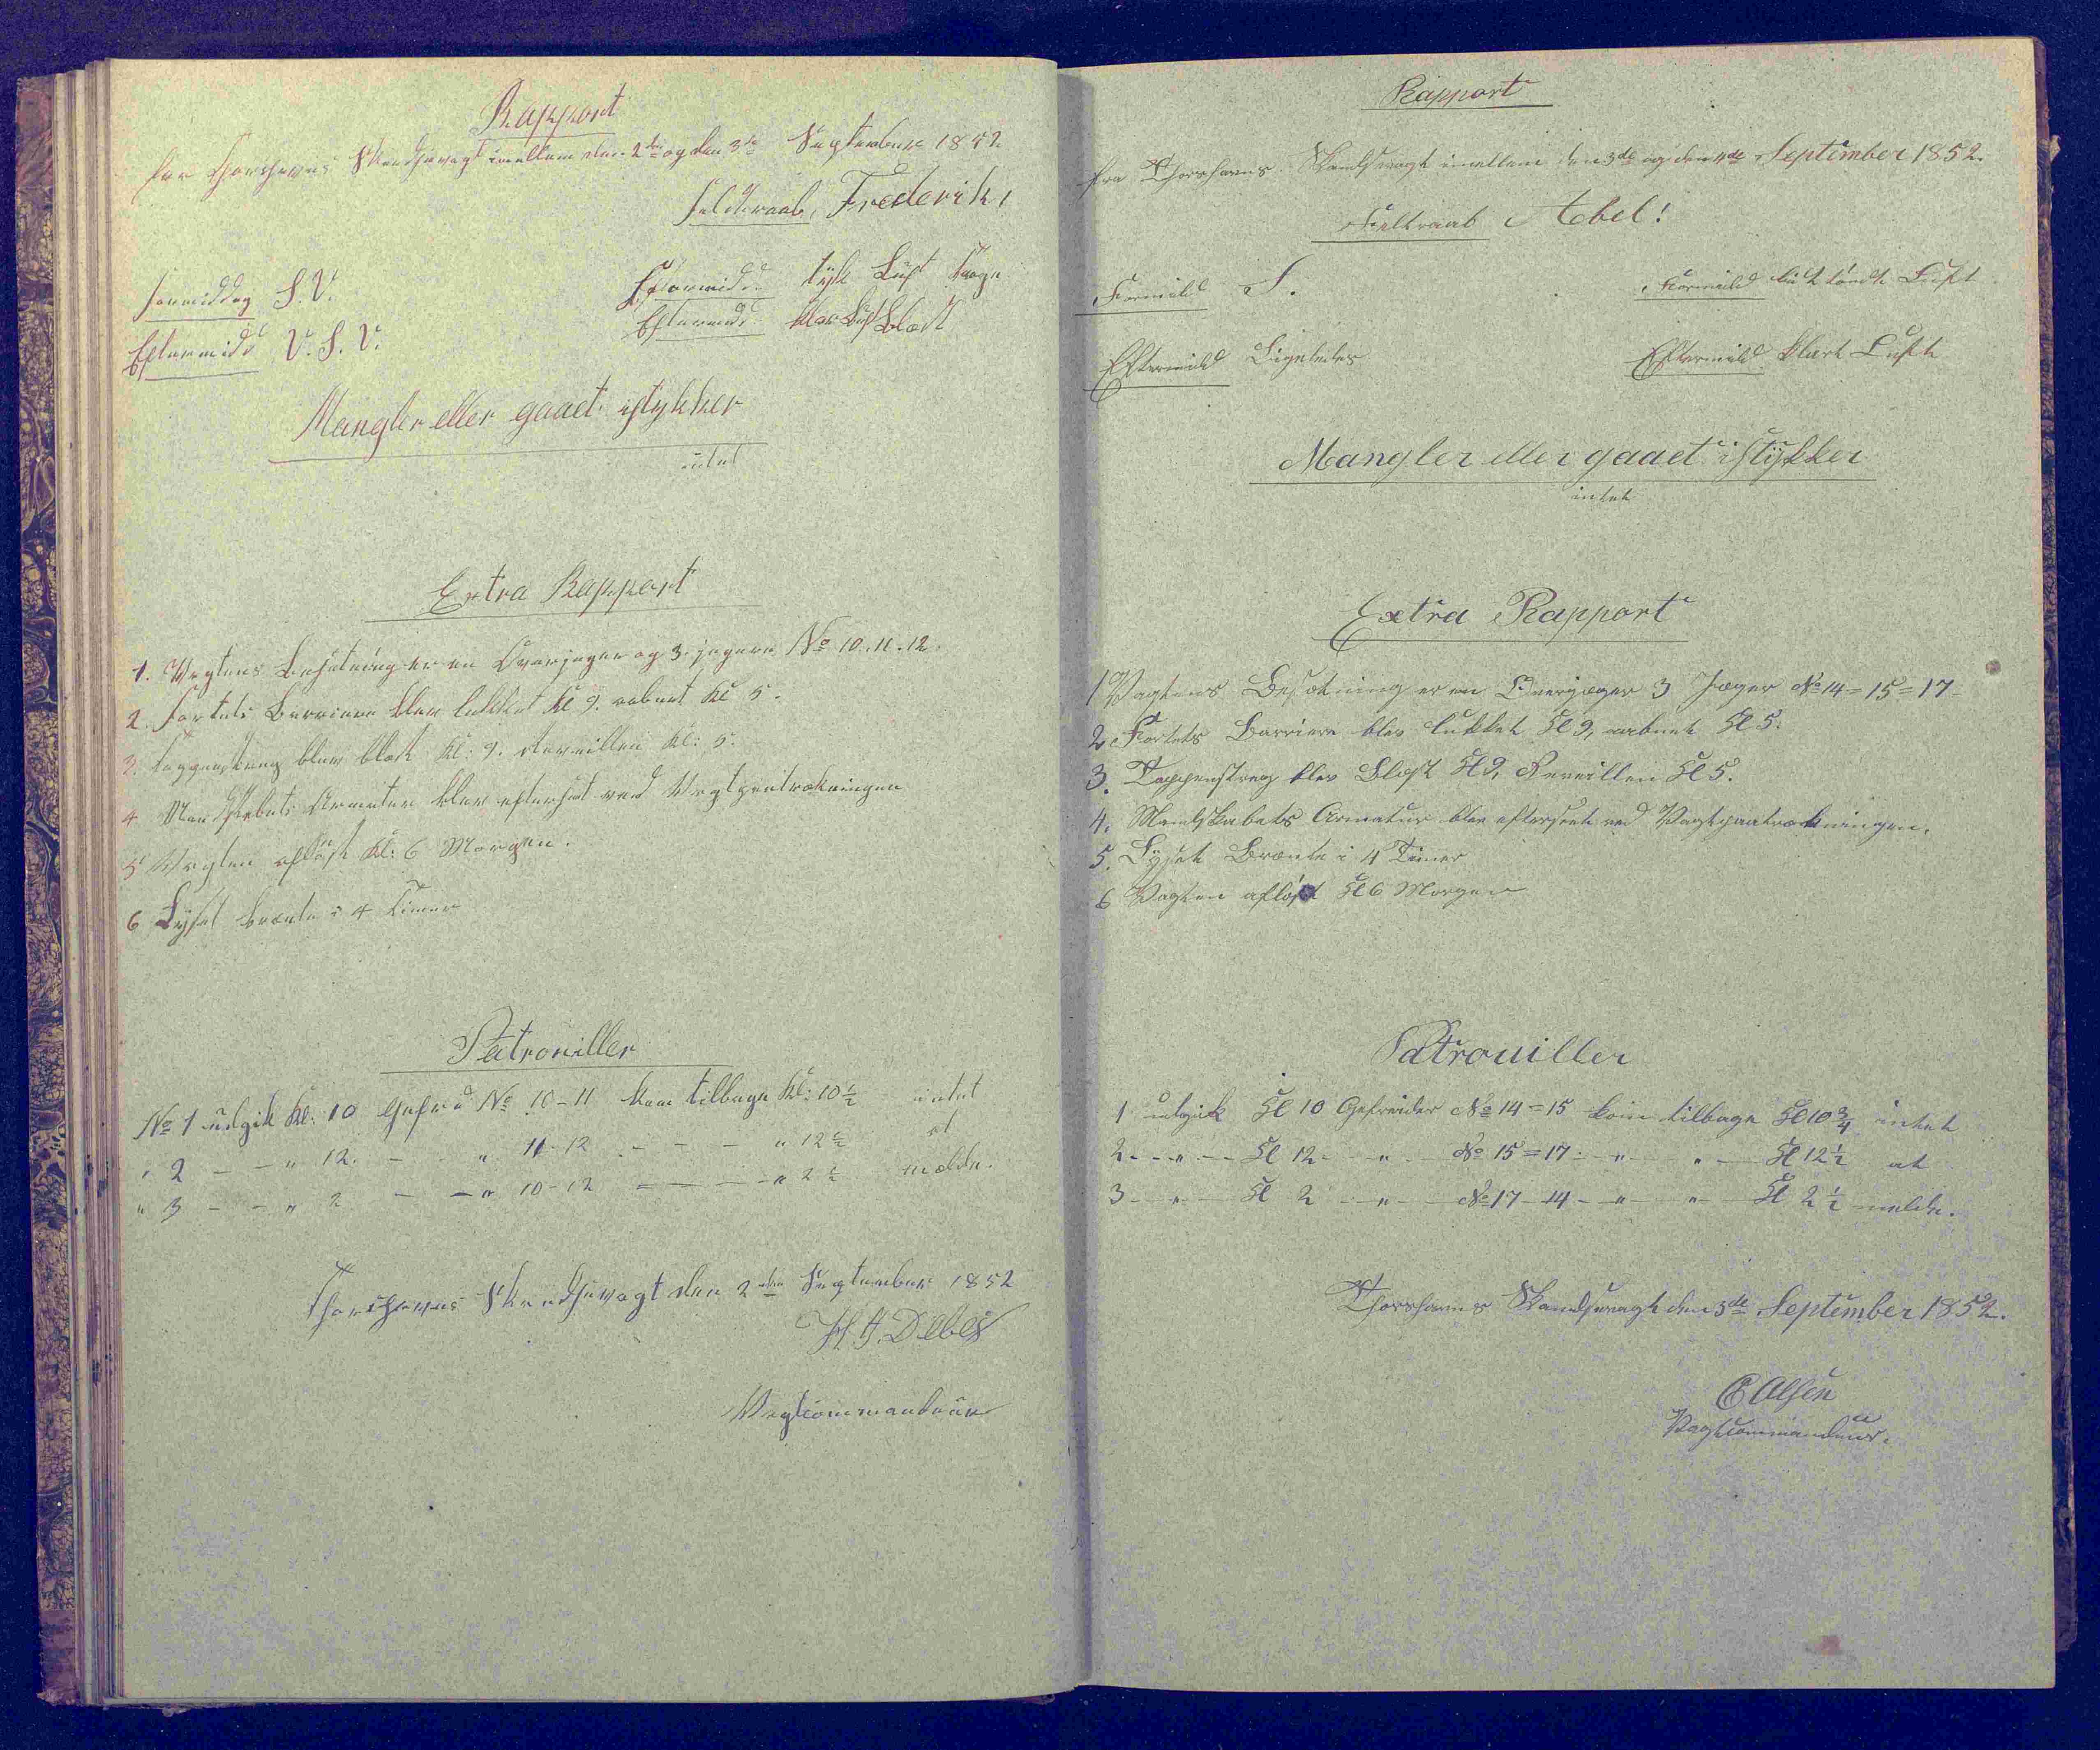 Rapport
fra Thorshavns Skandsevagt imellem den 2den og den 3de September 1852
Feltraab, Frederik!
Formiddag S. V.
Formidd. tyk Luft Taage
Eftermidd V. S. V.
Eftermidd. klar Luft Blæst
Mangler eller gaaet istykker
intet
Extra Rapport
1. Vagtens Besætning er en Overjæger og 3. jægere No 10. 11. 12.
2. Fortets Barriere blev lukket Kl 9. aabnet Kl 5.
3. Tappenstreg blev blæst Kl: 9. Reveillen Kl: 5.
4 Mandskabets Armatur blev efterseet ved Vagtpaatrækningen
5 Vagten afløst Kl: 6 Morgen.
6 Lyset brænte i 4 Timer
Patrouiller
No 1 udgik Kl: 10 Gefreid No 10-11 kom tilbage Kl: 10½ intet
" 2 - - " 12. - - " 11-12 . - - - " 12½ at
" 3 - - " 2 - - " 10-12 - - - - " 2½ melde.
Thorshavns Skandsevagt den 2den September 1852
H. J. Debes
Vagtcommandeur
Rapport
fra Thorshavns Skandsevagt imellem den 3de og den 4de September 1852.
Feltraab Abel!
Formidd S.
Formidd Luft
Eftermidd Ligeledes
Eftermidd. klart Luft
Mangler eller gaaet istykker
intet
Extra Rapport
1 Vagtens Besætning er en Overjæger 3 Jæger No 14=15=17
2. Fortets Barriere blev lukket Kl 9, aabnet Kl 5.
3. Tappenstreg blev Blæst Kl 9, Reveillen Kl 5.
4. Mandskabets Armatur blev efterseet ved Vagtpaatrækningen.
5. Lyset Brænte i 4 Timer
6 Vagten afløst Kl 6 Morgen
Patrouiller
1 udgik Kl 10 Gefreider No 14=15 kom tilbage Kl 10¾ intet
2 - - " - - Kl 12 - - " - - No 15=17 - " - " - Kl 12½ at
3 - - " - - Kl 2 - - " - - No 17-14 - " - " - Kl 2½ melde.
Thorshavns Skandsevagt den 3de September 1852.
E Olsen
Vagtcommandeur.